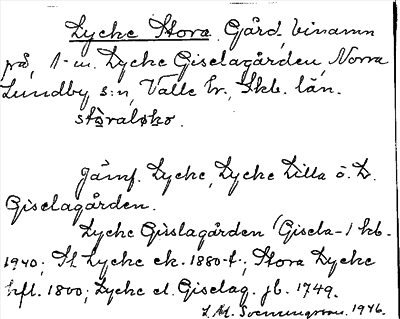 Lycke Stora. Gård, binamn
på 1 m. Lycke Giselagården, Norra
Lundby s:n, Valle hr, Skb. län.
Jämf. Lycke, Lycke Lilla o. L.
Giselagården.
Lycke Gislagården (Gisela-) kb.
1940; St Lycke ek. 1880-t.; Stora Lycke
hfl. 1800; Lycke el. Giselag. jb. 1749.
1946.